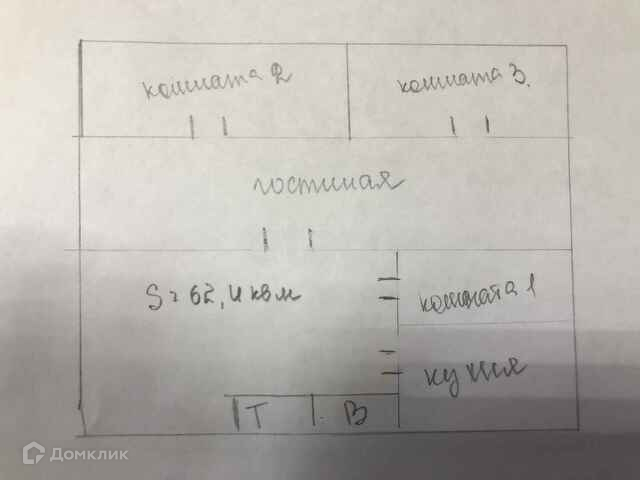 комната 2
комната 3.
гостиная
S = 62,4 кв м
комната 1
кухня
Т В
Домклик